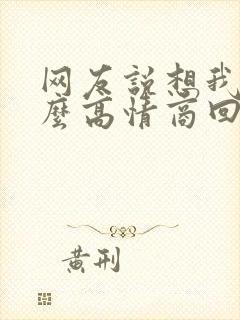 网友说想我
麼高情商回
黄刑